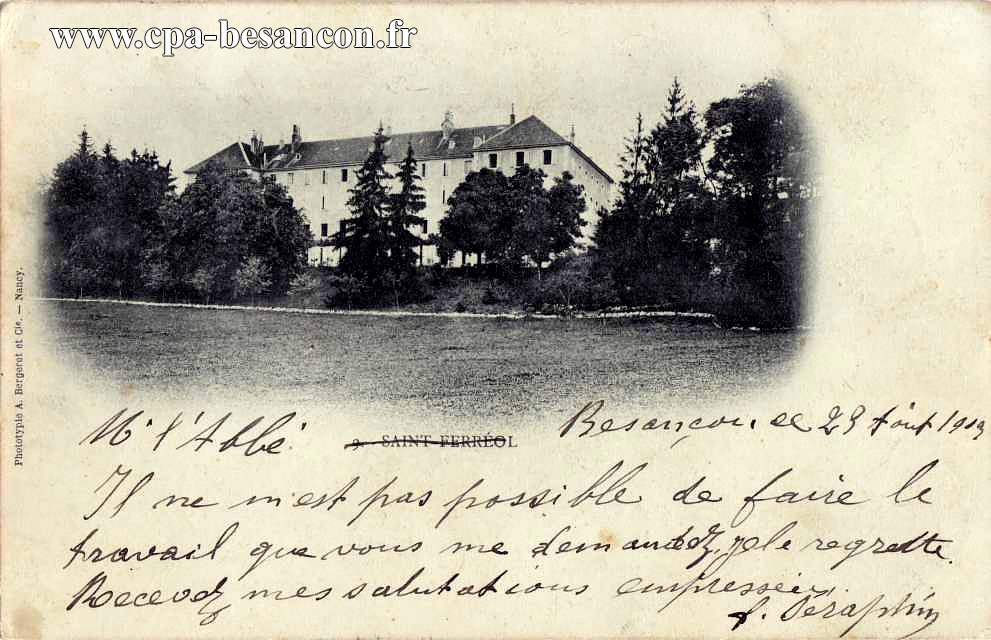 www.cpa-besancon.fr
Phototypie A. Bergeret et Cie. — Nancy.
Mr l'Abbé.
9. SAINT FERRÉOL
Besançon le 23 Août
Il ne m'est pas possible de faire le
travail que vous me demandez, je le regrette.
Recevez mes salutations empressées.
f. Séraphin